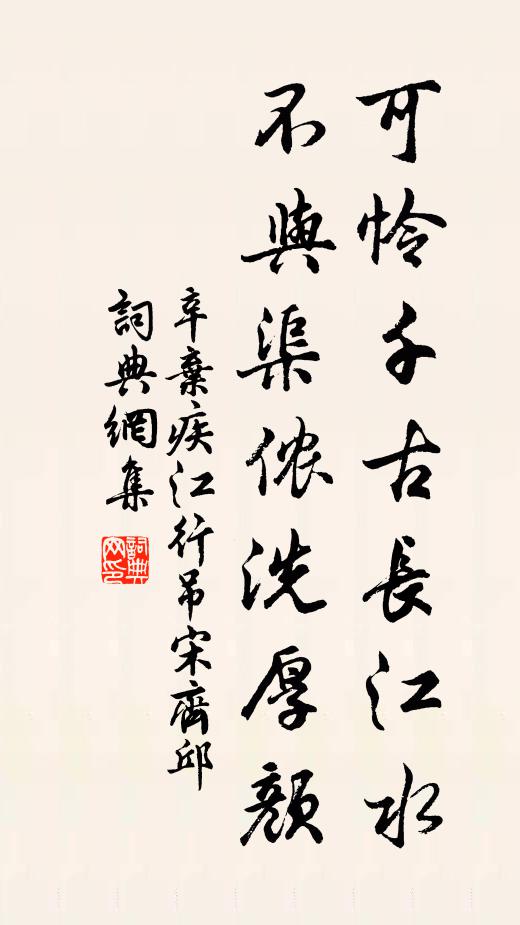 可憐千古長江水
不與渠儂洗厚顏
辛棄疾江行吊宋齊邱
詞典網集
詞典网印